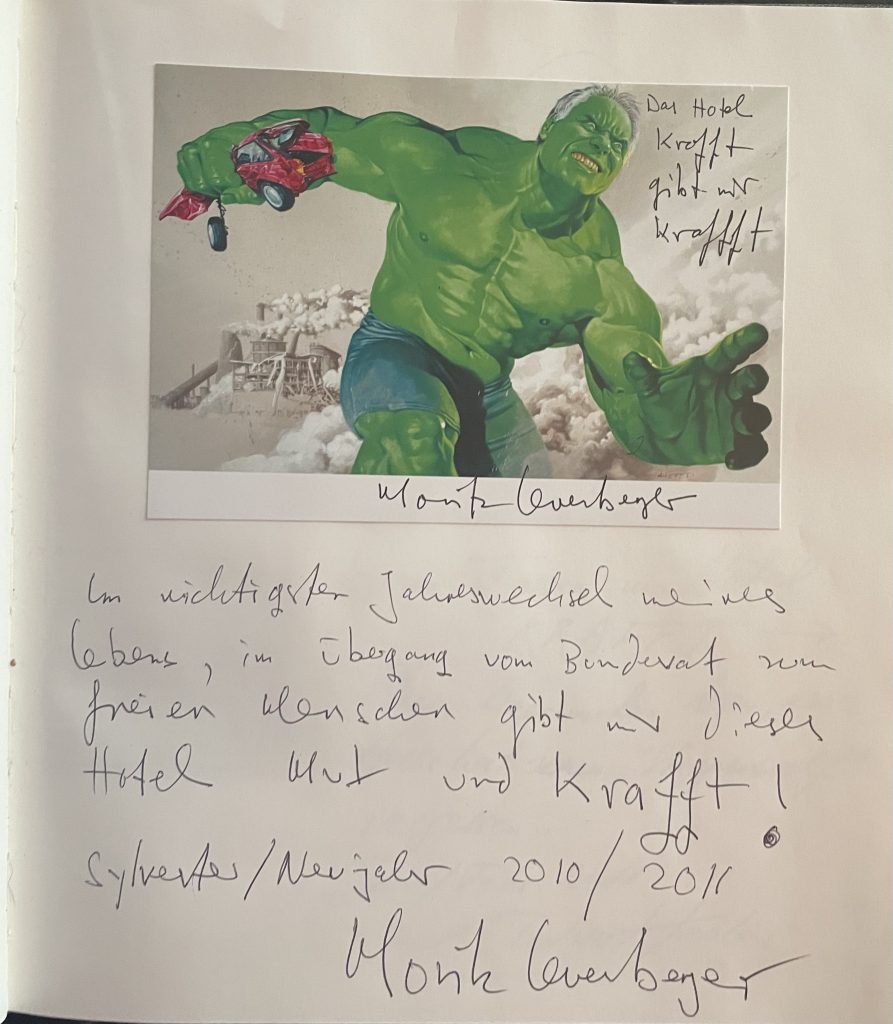 Das Hotel
Krafft
gibt mir
Krafft
Moritz Leuenberger
Im wichtigsten Jahreswechsel meines
Lebens, im Übergang vom Bundesrat zum
freien Menschen gibt mir dieses
Hotel Mut und Krafft!
Sylvester/Neujahr 2010/2011
Moritz Leuenberger